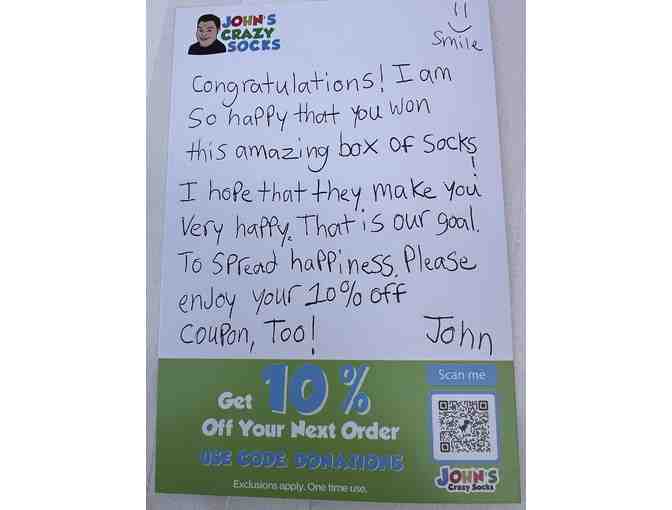 JOHN'S
CRAZY
SOCKS
Smile
Congratulations! I am
So happy that you won
this amazing box of socks!
I hope that they make you
Very happy. That is our goal.
To spread happiness. Please
enjoy your 10% off
coupon, Too!
John
Get 10%
Off Your Next Order
USE CODE DONATIONS
Exclusions apply. One time use.
Scan me
JOHN'S
Crazy Socks